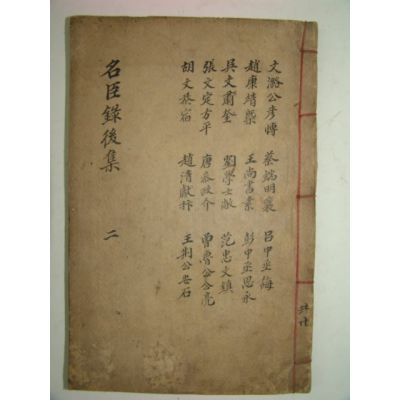 文潞公彦博 蔡端明襄 呂中丞誨
趙康靖槩 王尚書素 彭中丞思永
吳文肅奎 劉學士敞 范忠文鎮
張文定方平 唐參政介 曾魯公公亮
胡文恭宿 趙清獻抃 王荊公安石
名臣錄後集 二
共十